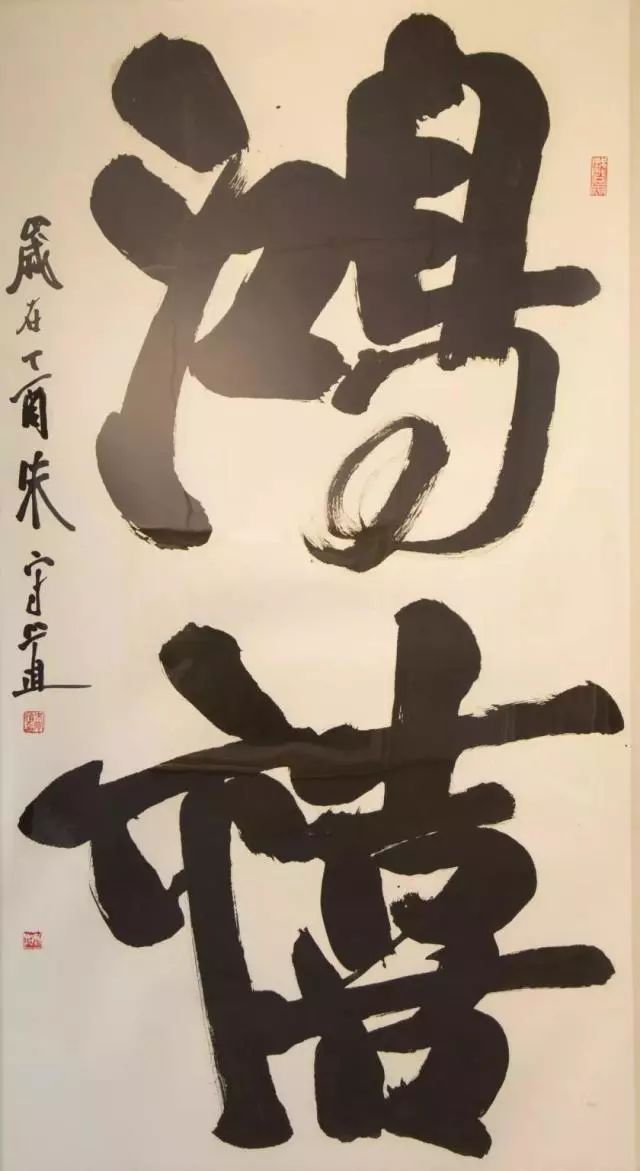 鴻
禧
歲在丁酉朱守道